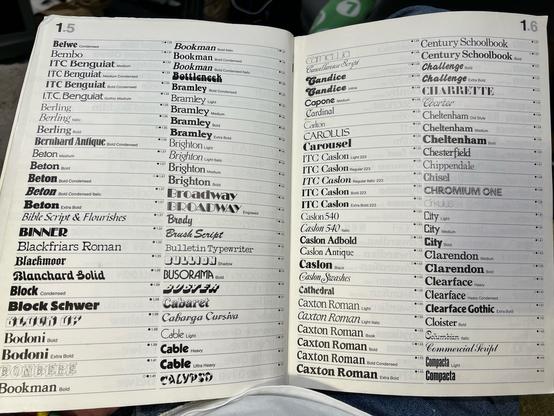 1.5
Belwe Condensed
Bembo
ITC Benguiat Medium
ITC Benguiat Medium Condensed
ITC Benguiat Bold Condensed
I.T.C. Benguiat Gothic Medium
Berling
Berling Italic
Berling Bold
Bernhard Antique Bold Condensed
Beton Medium
Beton Bold
Beton Bold Condensed
Beton Bold Condensed Italic
Beton Extra Bold
Bible Script & Flourishes
BINNER
Blackfriars Roman
Blackmoor
Blanchard Solid
Block Condensed
Block Schwer
BLOCK UP
Bodoni Bold
Bodoni Extra Bold
BOMBERE
Bookman Bold
Bookman Bold Italic
Bookman Bold Condensed
Bookman Bold Condensed Italic
Bottleneck
Bramley
Bramley Light
Bramley Medium
Bramley Bold
Bramley Extra Bold
Brighton Light
Brighton Light Italic
Brighton Medium
Brighton Bold
Broadway
BROADWAY Engraved
Brody
Brush Script
Bulletin Typewriter
BULLION Shadow
BUSORAMA Bold
BUSTER
Cabaret
Cabarga Cursiva
Cable Light
Cable Heavy
Cable Ultra Heavy
CALYPSO
1.6
camellia
Cancellaresca Script
Candice
Candice Inline
Capone Medium
Cardinal
Carlton
CAROLUS
Carousel
ITC Caslon Light 223
ITC Caslon Regular 223
ITC Caslon Regular Italic 223
ITC Caslon Bold 223
ITC Caslon Extra Bold 223
Caslon 540
Caslon 540 Italic
Caslon Adbold
Caslon Antique
Caslon Black
Caslon Swashes
Cathedral
Caxton Roman Light
Caxton Roman Light Italic
Caxton Roman Book
Caxton Roman Bold
Caxton Roman Bold Condensed
Caxton Roman Extra Bold
Century Schoolbook
Century Schoolbook Bold
Challenge Bold
Challenge Extra Bold
CHARRETTE
Charter
Cheltenham Old Style
Cheltenham Medium
Cheltenham Bold
Chesterfield
Chippendale
Chisel
CHROMIUM ONE
City Light
City Medium
City Bold
Clarendon Medium
Clarendon Bold
Clearface Heavy
Clearface Heavy Condensed
Clearface Gothic Extra Bold
Cloister Bold
Columbian Italic
Commercial Script
Compacta Light
Compacta